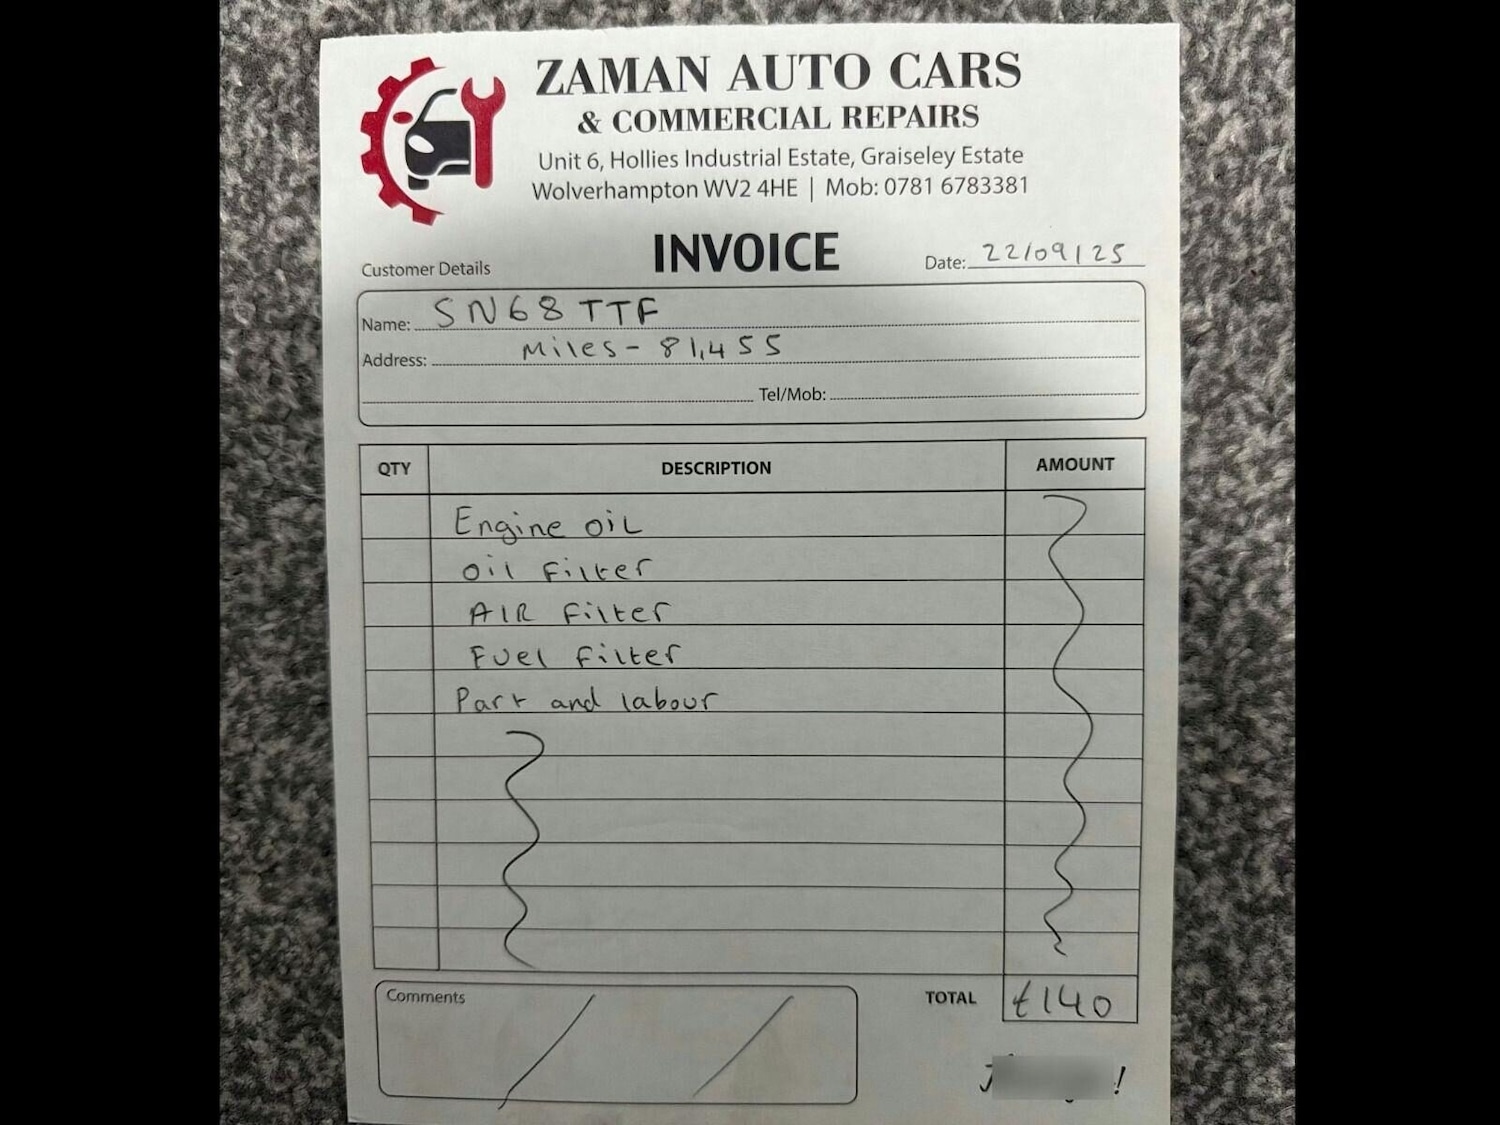 ZAMAN AUTO CARS
& COMMERCIAL REPAIRS
Unit 6, Hollies Industrial Estate, Graiseley Estate
Wolverhampton WV2 4HE | Mob: 0781 6783381
INVOICE
Date: 22/09/25
Customer Details
Name: SN68 TTF
Address: Miles - 81,455
Tel/Mob:
QTY DESCRIPTION AMOUNT
Engine OiL
Oil Filter
AIR Filter
Fuel Filter
Part and labour
Comments
TOTAL £140